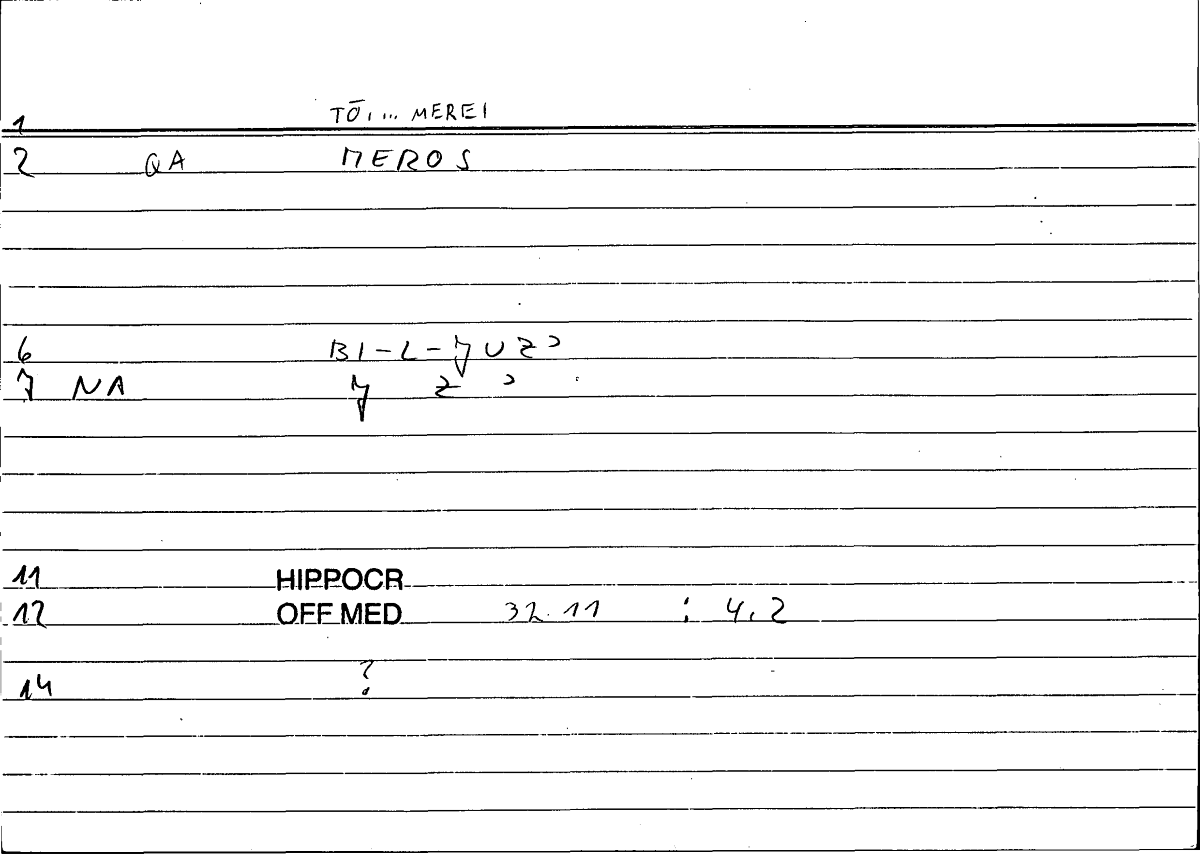 1 TŌI... MEREI
2 QA MEROS
6 BI-L-ʒUZɔ
7 NA ʒ Z ɔ
11 HIPPOCR
12 OFF MED 32.11 : 4.2
14 ?